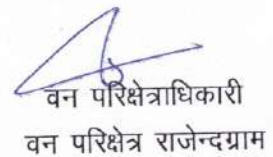 वन परिक्षेत्राधिकारी
वन परिक्षेत्र राजेन्दग्राम